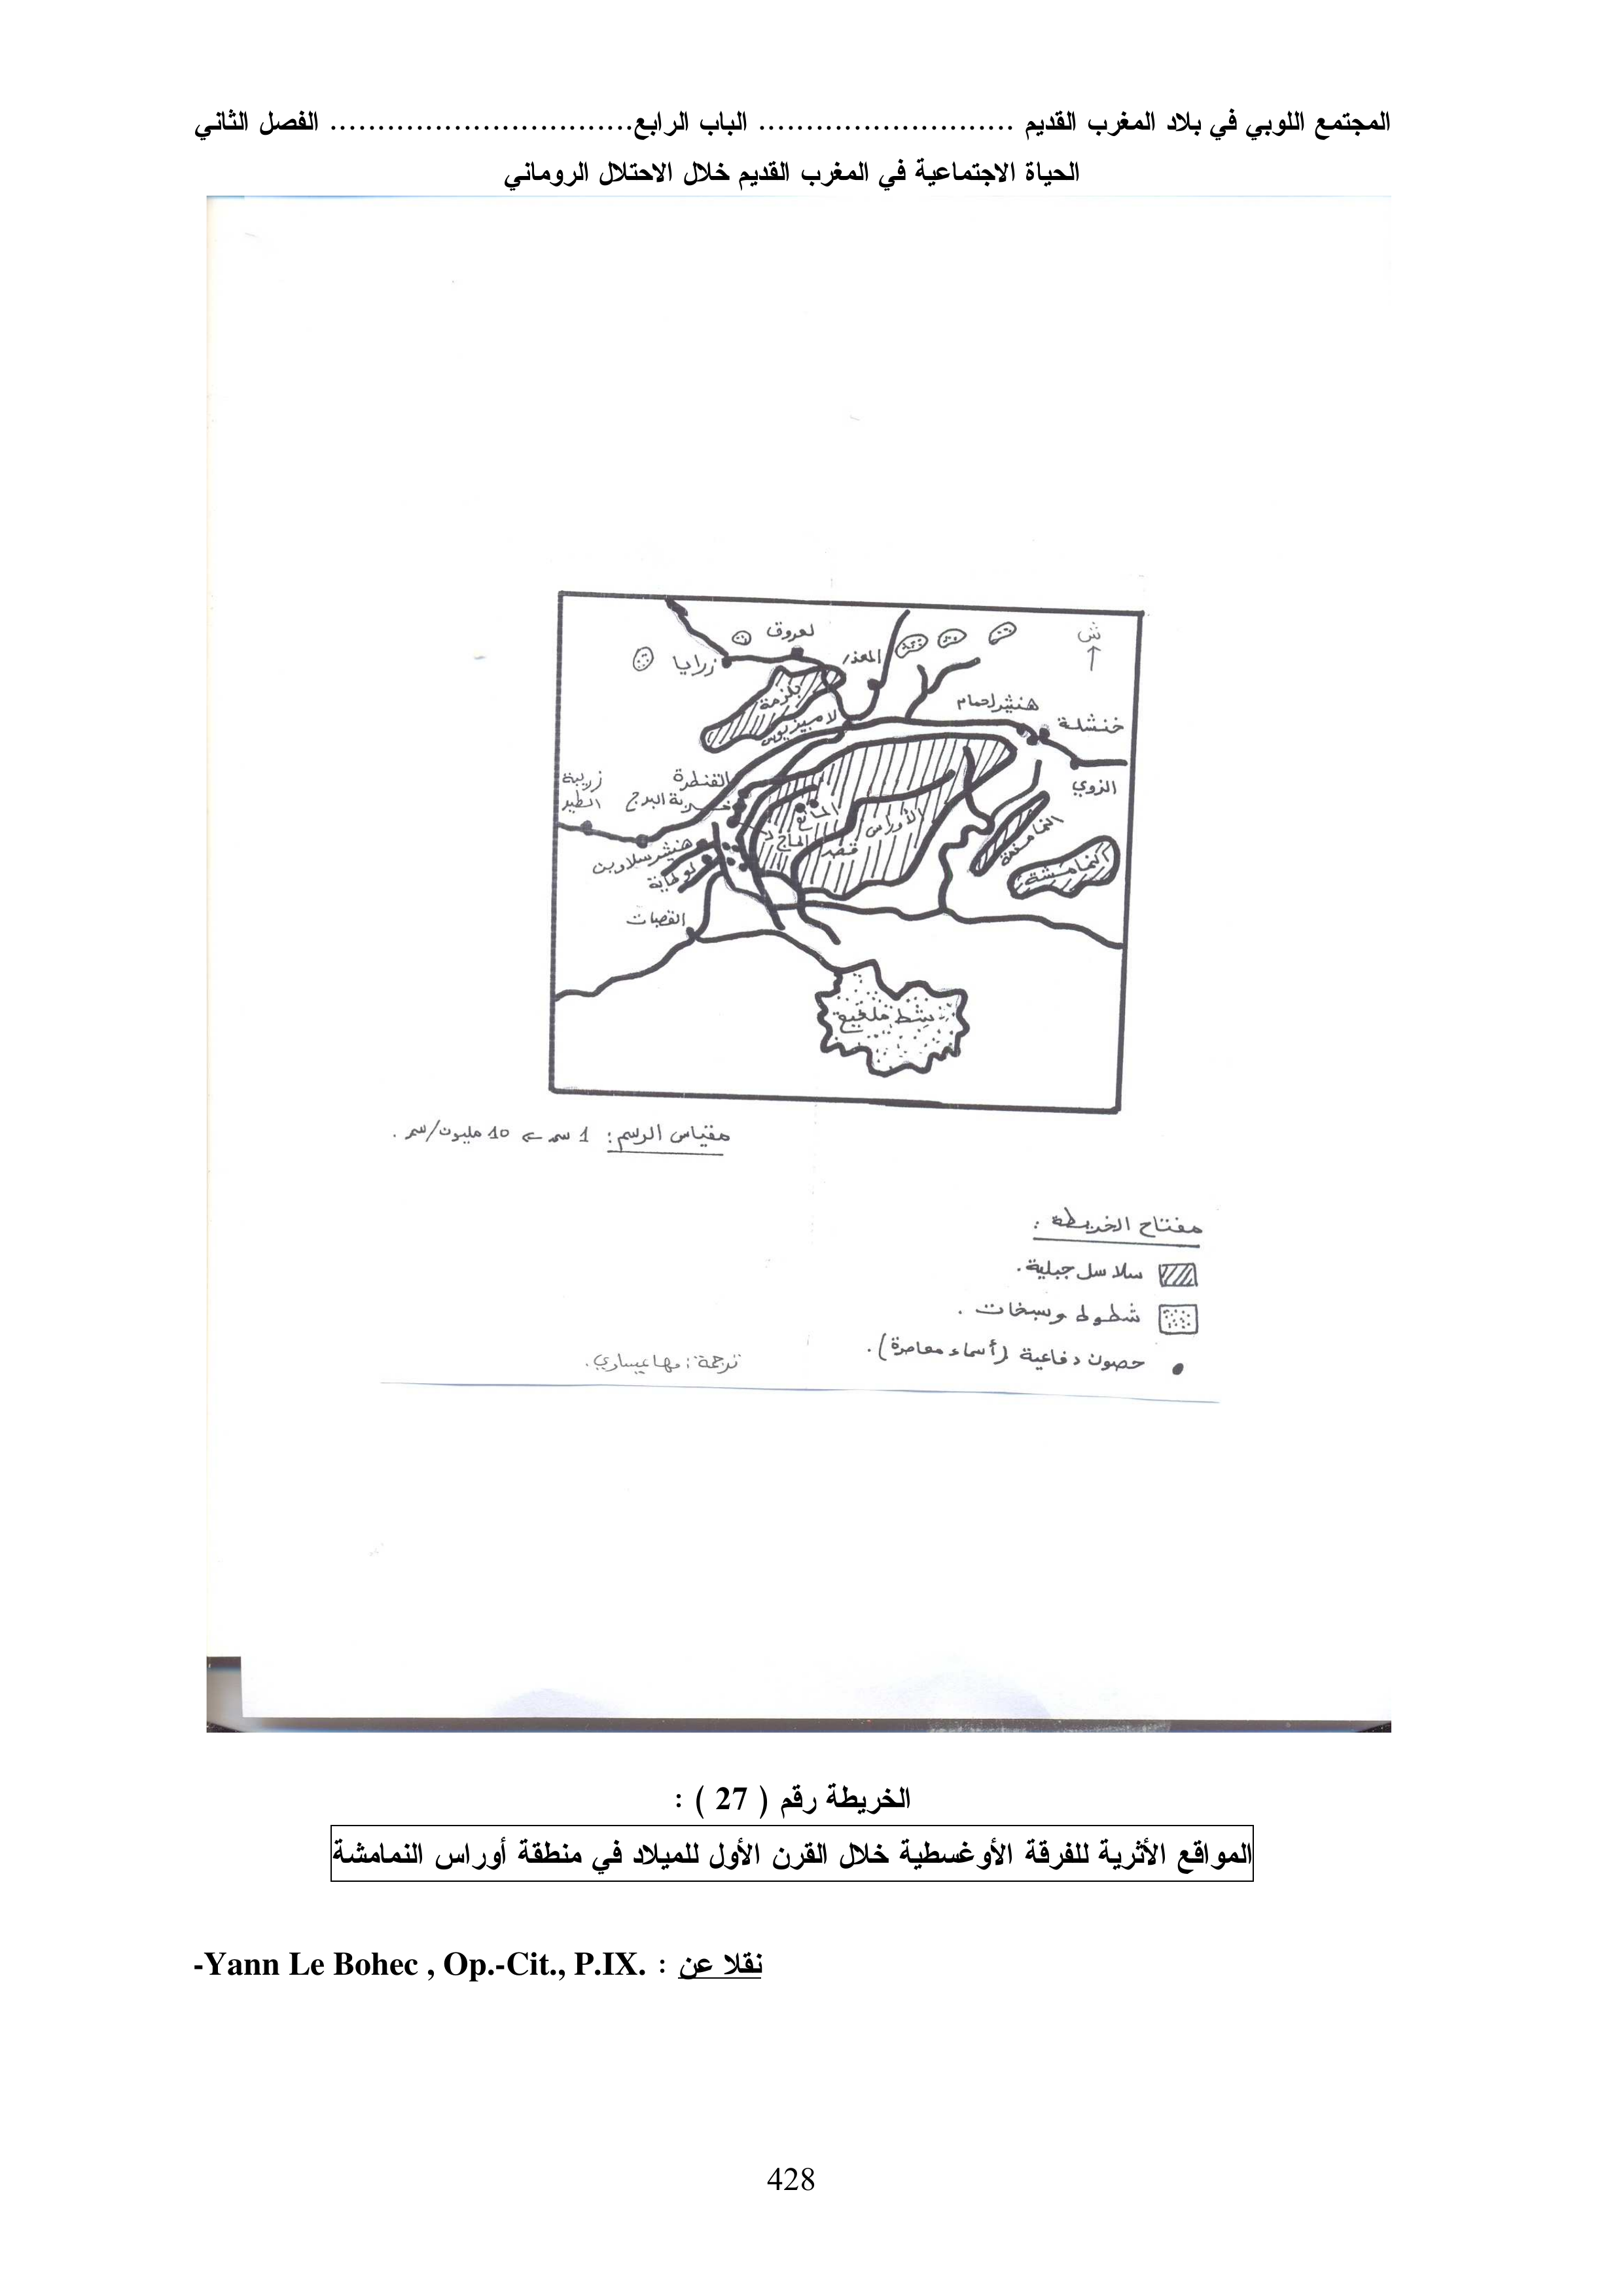 المجتمع اللوبي في بلاد المغرب القديم ........................... الباب الرابع................................ الفصل الثاني
الحياة الاجتماعية في المغرب القديم خلال الاحتلال الروماني
ش
لعروق
زرايا
المعذر
بلزمة
لامبيزيوس
هنشير لحمام
خنشلة
الزوي
القنطرة
زريبة
الطير
خربة البرج
الأوراس
قصد
النمامشة
النمامشة
هنشير سلاوين
لوطاية
القصبات
شط ملغيغ
مقياس الرسم: 1 سم ← 10 مليون/سم.
مفتاح الخريطة :
سلاسل جبلية.
شطوط وسبخات .
حصون دفاعية (أسماء معاصرة).
ترجمة: مها عيساوي.
الخريطة رقم ( 27 ) :
المواقع الأثرية للفرقة الأوغسطية خلال القرن الأول للميلاد في منطقة أوراس النمامشة
نقلا عن : -Yann Le Bohec , Op.-Cit., P.IX.
428